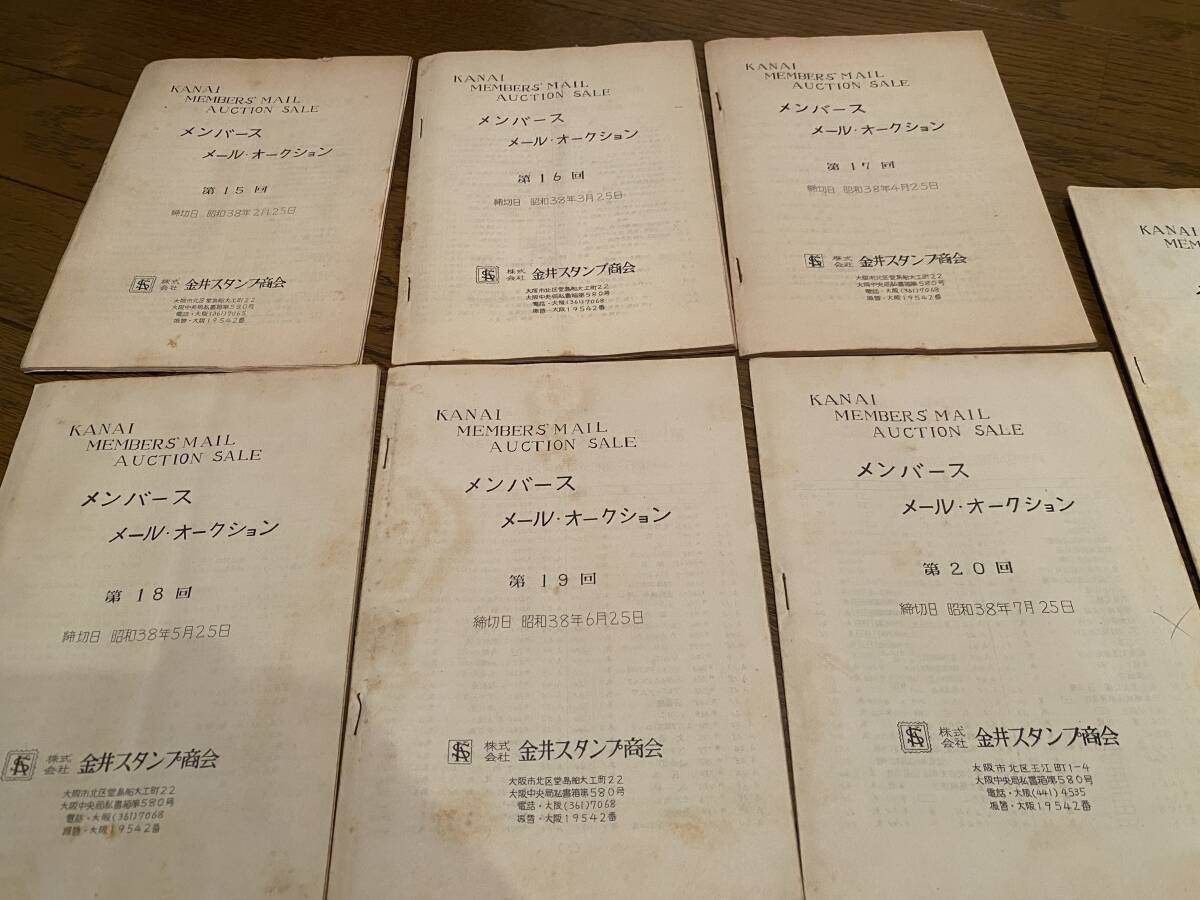 KANAI
MEMBERS' MAIL
AUCTION SALE
メンバース
メール・オークション
第15回
締切日 昭和38年2月25日
株式会社 金井スタンプ商会
大阪市北区堂島船大工町22
大阪中央局私書箱第580号
電話・大阪(361)7065
振替・大阪19542番
KANAI
MEMBERS' MAIL
AUCTION SALE
メンバース
メール・オークション
第16回
締切日 昭和38年3月25日
株式会社 金井スタンプ商会
大阪市北区堂島船大工町22
大阪中央局私書箱第580号
電話・大阪(361)7068
振替・大阪19542番
KANAI
MEMBERS' MAIL
AUCTION SALE
メンバース
メール・オークション
第17回
締切日 昭和38年4月25日
株式会社 金井スタンプ商会
大阪市北区堂島船大工町22
大阪中央局私書箱第580号
電話・大阪(361)7068
振替・大阪19542番
KANAI
KANAI
MEMBERS' MAIL
AUCTION SALE
メンバース
メール・オークション
第18回
締切日 昭和38年5月25日
株式会社 金井スタンプ商会
大阪市北区堂島船大工町22
大阪中央局私書箱第580号
電話・大阪(361)7068
振替・大阪19542番
KANAI
MEMBERS' MAIL
AUCTION SALE
メンバース
メール・オークション
第19回
締切日 昭和38年6月25日
株式会社 金井スタンプ商会
大阪市北区堂島船大工町22
大阪中央局私書箱第580号
電話・大阪(361)7068
振替・大阪19542番
KANAI
MEMBERS' MAIL
AUCTION SALE
メンバース
メール・オークション
第20回
締切日 昭和38年7月25日
株式会社 金井スタンプ商会
大阪市北区玉江町1-4
大阪中央局私書箱第580号
電話・大阪(441)4535
振替・大阪19542番